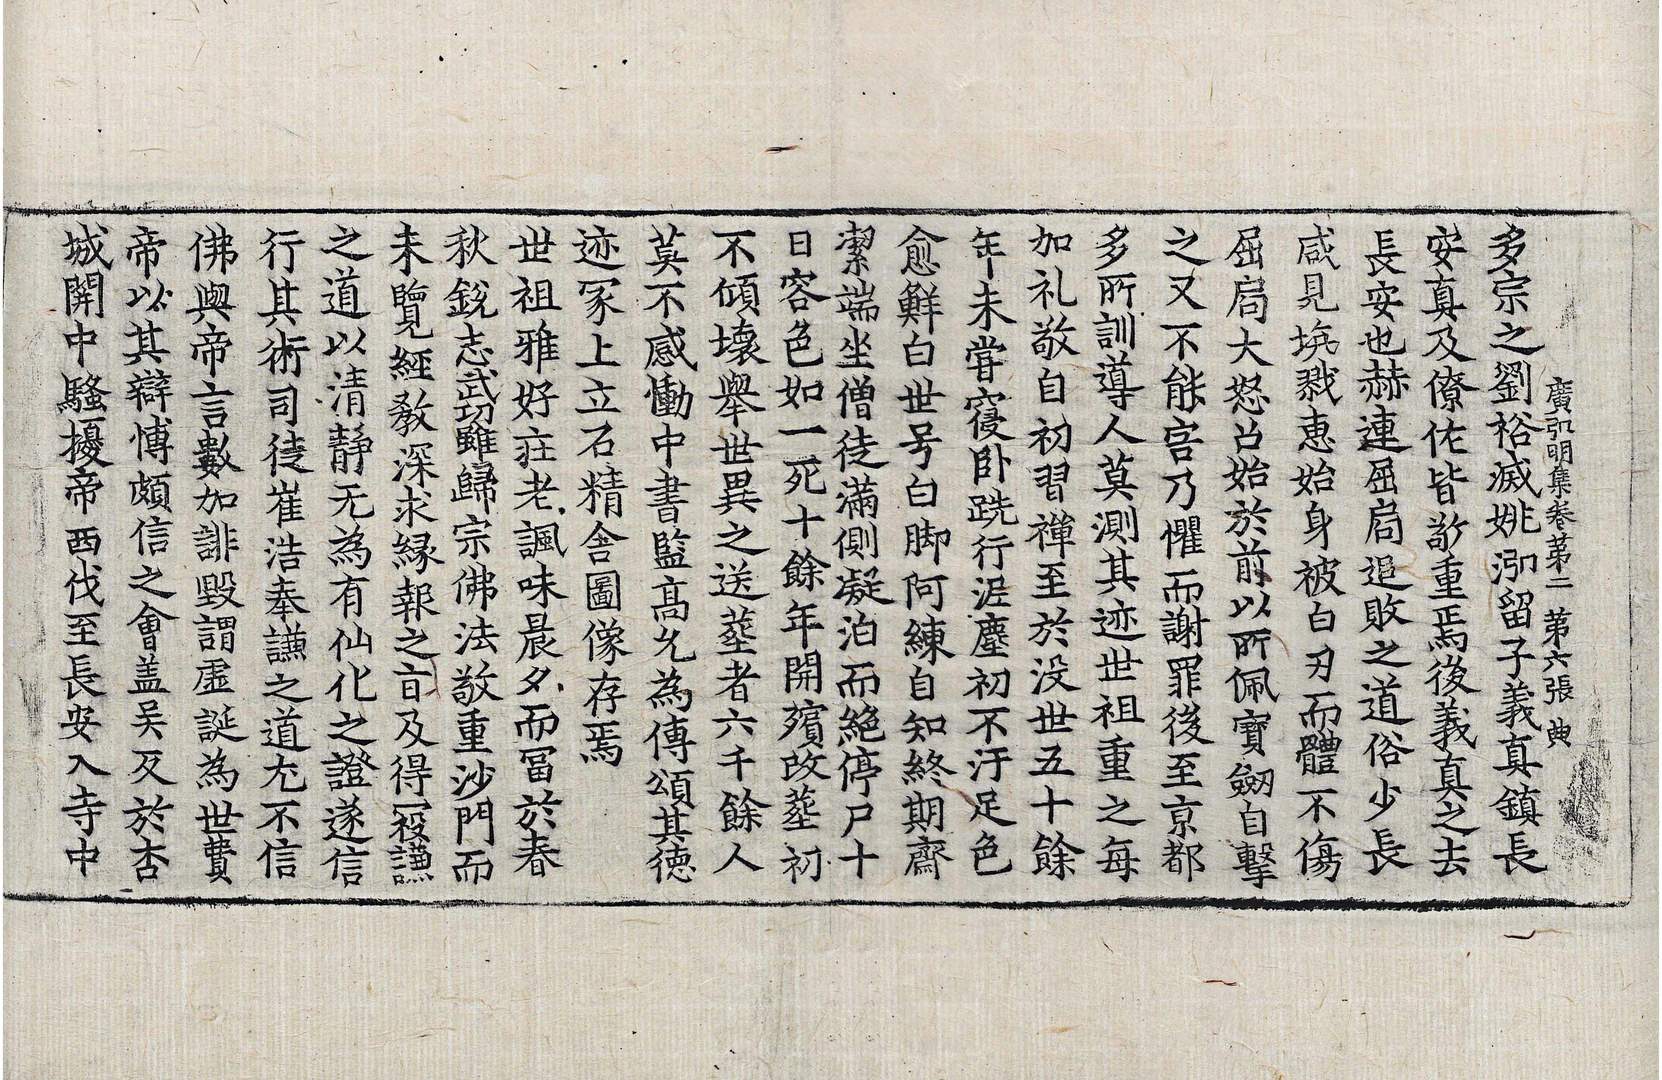 廣弘明集卷苐二　苐六張　典
多宗之劉裕滅姚泓留子義真鎮長
安真及僚佐皆敬重焉後義真之去
長安也赫連屈局追敗之道俗少長
咸見坑戮惠始身被白刃而體不傷
屈局大怒召始於前以所佩寶劒自擊
之又不能害乃懼而謝罪後至京都
多所訓導人莫測其迹世祖重之每
加礼敬自初習禪至於没世五十餘
年未甞寑卧跣行泥塵初不汙足色
愈鮮白世号白脚阿練自知終期齋
潔端坐僧徒滿側凝泊而絶停尸十
日容色如一死十餘年開殯改葬初
不傾壞舉世異之送葬者六千餘人
莫不感慟中書監高允為傳頌其德
迹冢上立石精舍圖像存焉
世祖雅好莊老諷味晨夕而冨於春
秋銳志武功雖歸宗佛法敬重沙門而
未覽經教深求縁報之旨及得冦謙
之道以清靜无為有仙化之證遂信
行其術司徒崔浩奉謙之道尤不信
佛與帝言數加誹毀謂虛誕為世費
帝以其辯博頗信之會盖吴反於杏
城開中騷擾帝西伐至長安入寺中